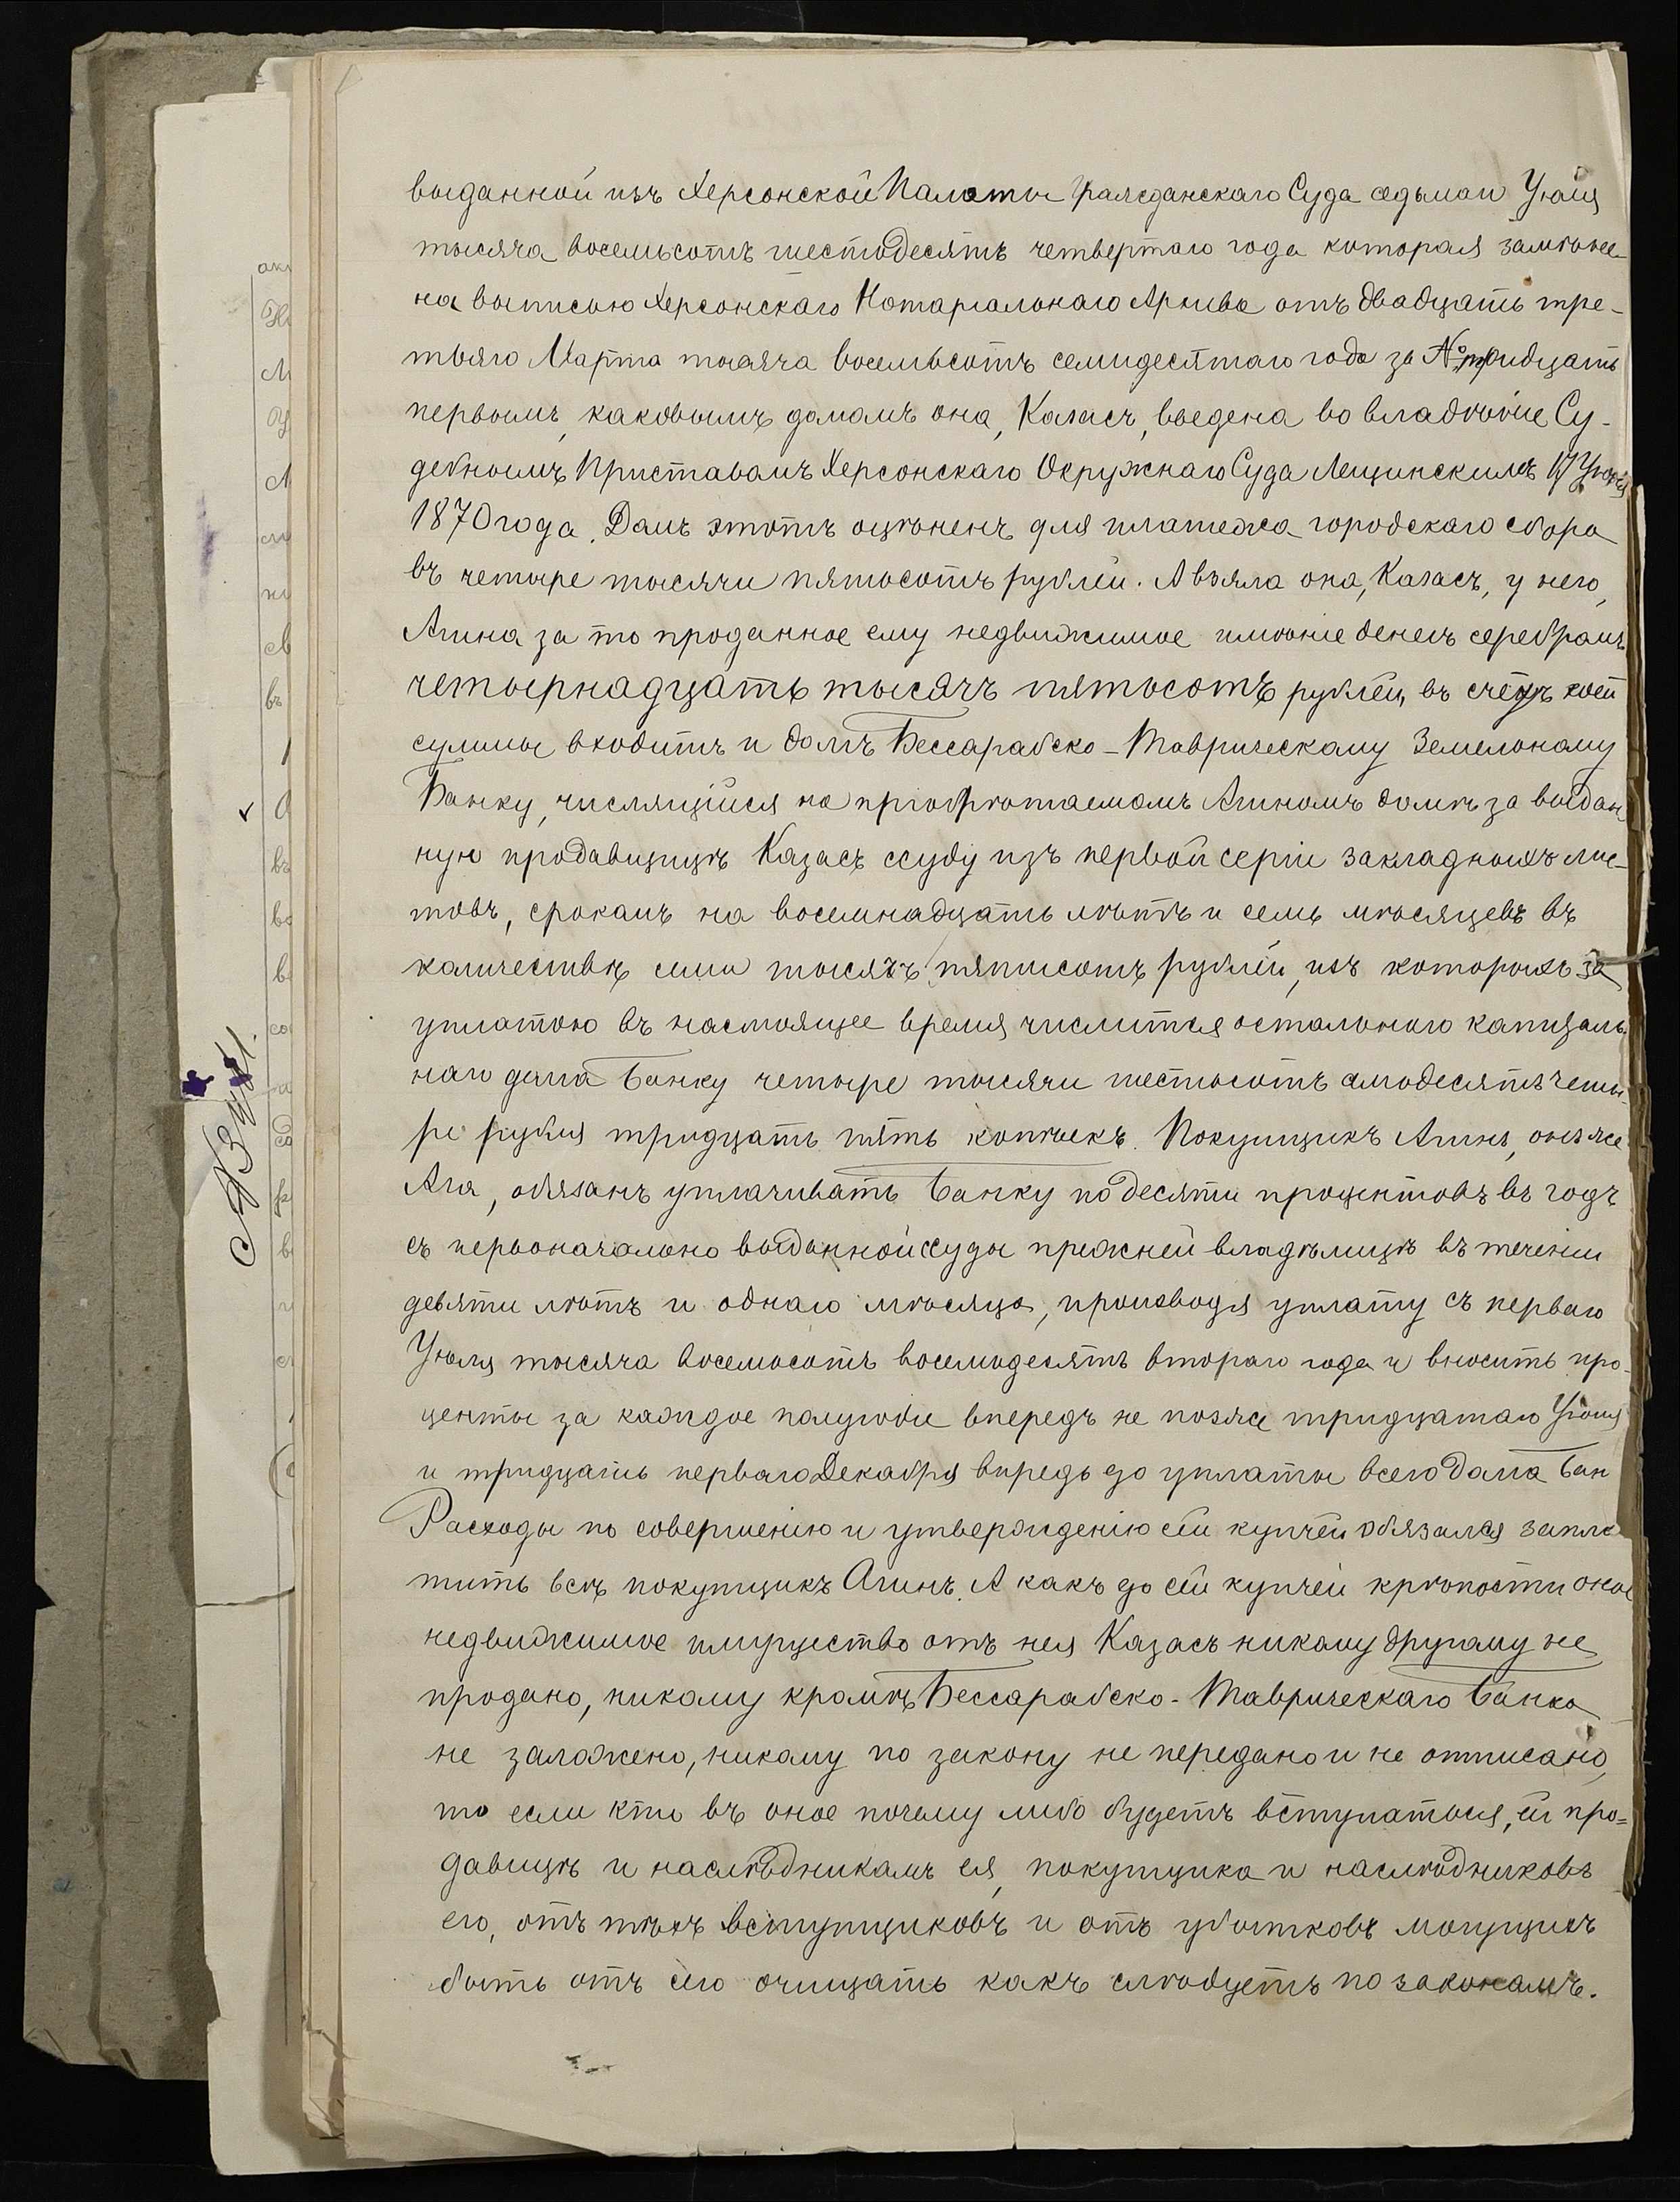 выданной изъ Херсонской Палаты Гражданскаго Суда седьмаго Іюля
тысяча восемьсотъ шестьдесятъ четвертаго года которая замѣне-
на выписью Херсонскаго Нотаріальнаго Архива отъ двадцать тре-
тьяго Марта тысяча восемьсотъ семидесятаго года за № тридцать
первымъ, каковымъ домомъ она, Казасъ, введена во владѣніе Су-
дебнымъ Приставомъ Херсонскаго Окружнаго Суда Лещинскимъ 17
1870 года. Домъ этотъ оцѣненъ для платежа городскаго сбора
въ четыре тысячи пятьсотъ рублей. А взяла она, Казасъ, у него,
Агина за то проданное ему недвижимое имѣніе денегъ серебромъ
четырнадцать тысячъ пятьсотъ рублей, въ счетъ коей
суммы входитъ и долгъ Бессарабско-Таврическому Земельному
Банку, числящійся на пріобрѣтаемомъ Агиномъ домѣ за выдан
ную продавщицѣ Казасъ ссуду изъ первой серіи закладныхъ лис-
товъ, срокомъ на восемнадцать лѣтъ и семь мѣсяцевъ въ
количествѣ семи тысячъ пятисотъ рублей, изъ которыхъ за
уплатою въ настоящее время числится остальнаго капиталь
наго долга Банку четыре тысячи шестьсотъ семьдесятъ четы-
ре рубля тридцать пять копѣекъ. Покупщикъ Агинъ, онъ же
Ага, обязанъ уплачивать Банку по десяти процентовъ въ годъ
съ первоначально выданной ссуды прежней владѣлицѣ въ теченіи
девяти лѣтъ и однаго мѣсяца, производя уплату съ перваго
Іюля тысяча восемьсотъ восемьдесятъ втораго года и вносить про-
центы за каждое полугодіе впередъ не позже тридцатаго Іюня
и тридцать перваго Декабря впредь до уплаты всего долга Бан
Расходы по совершенію и утвержденію сей купчей обязался запла
тить всѣ покупщикъ Агинъ. А какъ до сей купчей крѣпости оное
недвижимое имущество отъ нея Казасъ никому другому не
продано, никому кромѣ Бессарабско-Таврическаго Банка
не заложено, никому по закону не передано и не отписано,
то если кто въ оное почему либо будетъ вступаться, ей про=
давицѣ и наслѣдникамъ ея, покупщика и наслѣдниковъ
его, отъ тѣхъ вступщиковъ и отъ убытковъ могущихъ
быть отъ сего очищать какъ слѣдуетъ по законамъ.